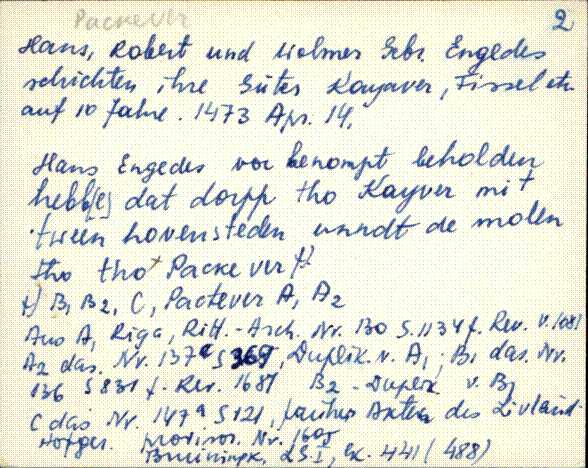 Packever
2
Hans, Robert und Wolmer Gebr. Engedes
schichten ihre Güter Kayaver, Fissel etc.
auf 10 Jahre. 1473 Apr. 14.
Hans Engedes vor benompt beholden
hebb[e] dat dorpp tho Kayver mit
tween hovensteden unndt de molen
tho tho+ Packever +)
+) B1 B2, C, Packever A, A2
Aus A, Riga, Ritt.-Arch. Nr. 130 S. 1134 f. Rev. v. 1681
A2 das. Nr. 137a S 365, Duplik. v. A1; B1 das. Nr.
136 S 831 f. Rev. 1681 B2 - Duplik. v. B1
C das Nr. 147a S 121, Akten des Livländ.
Hofger. Nr.
Bruiningk, LG. I, Ex. 441 (488)